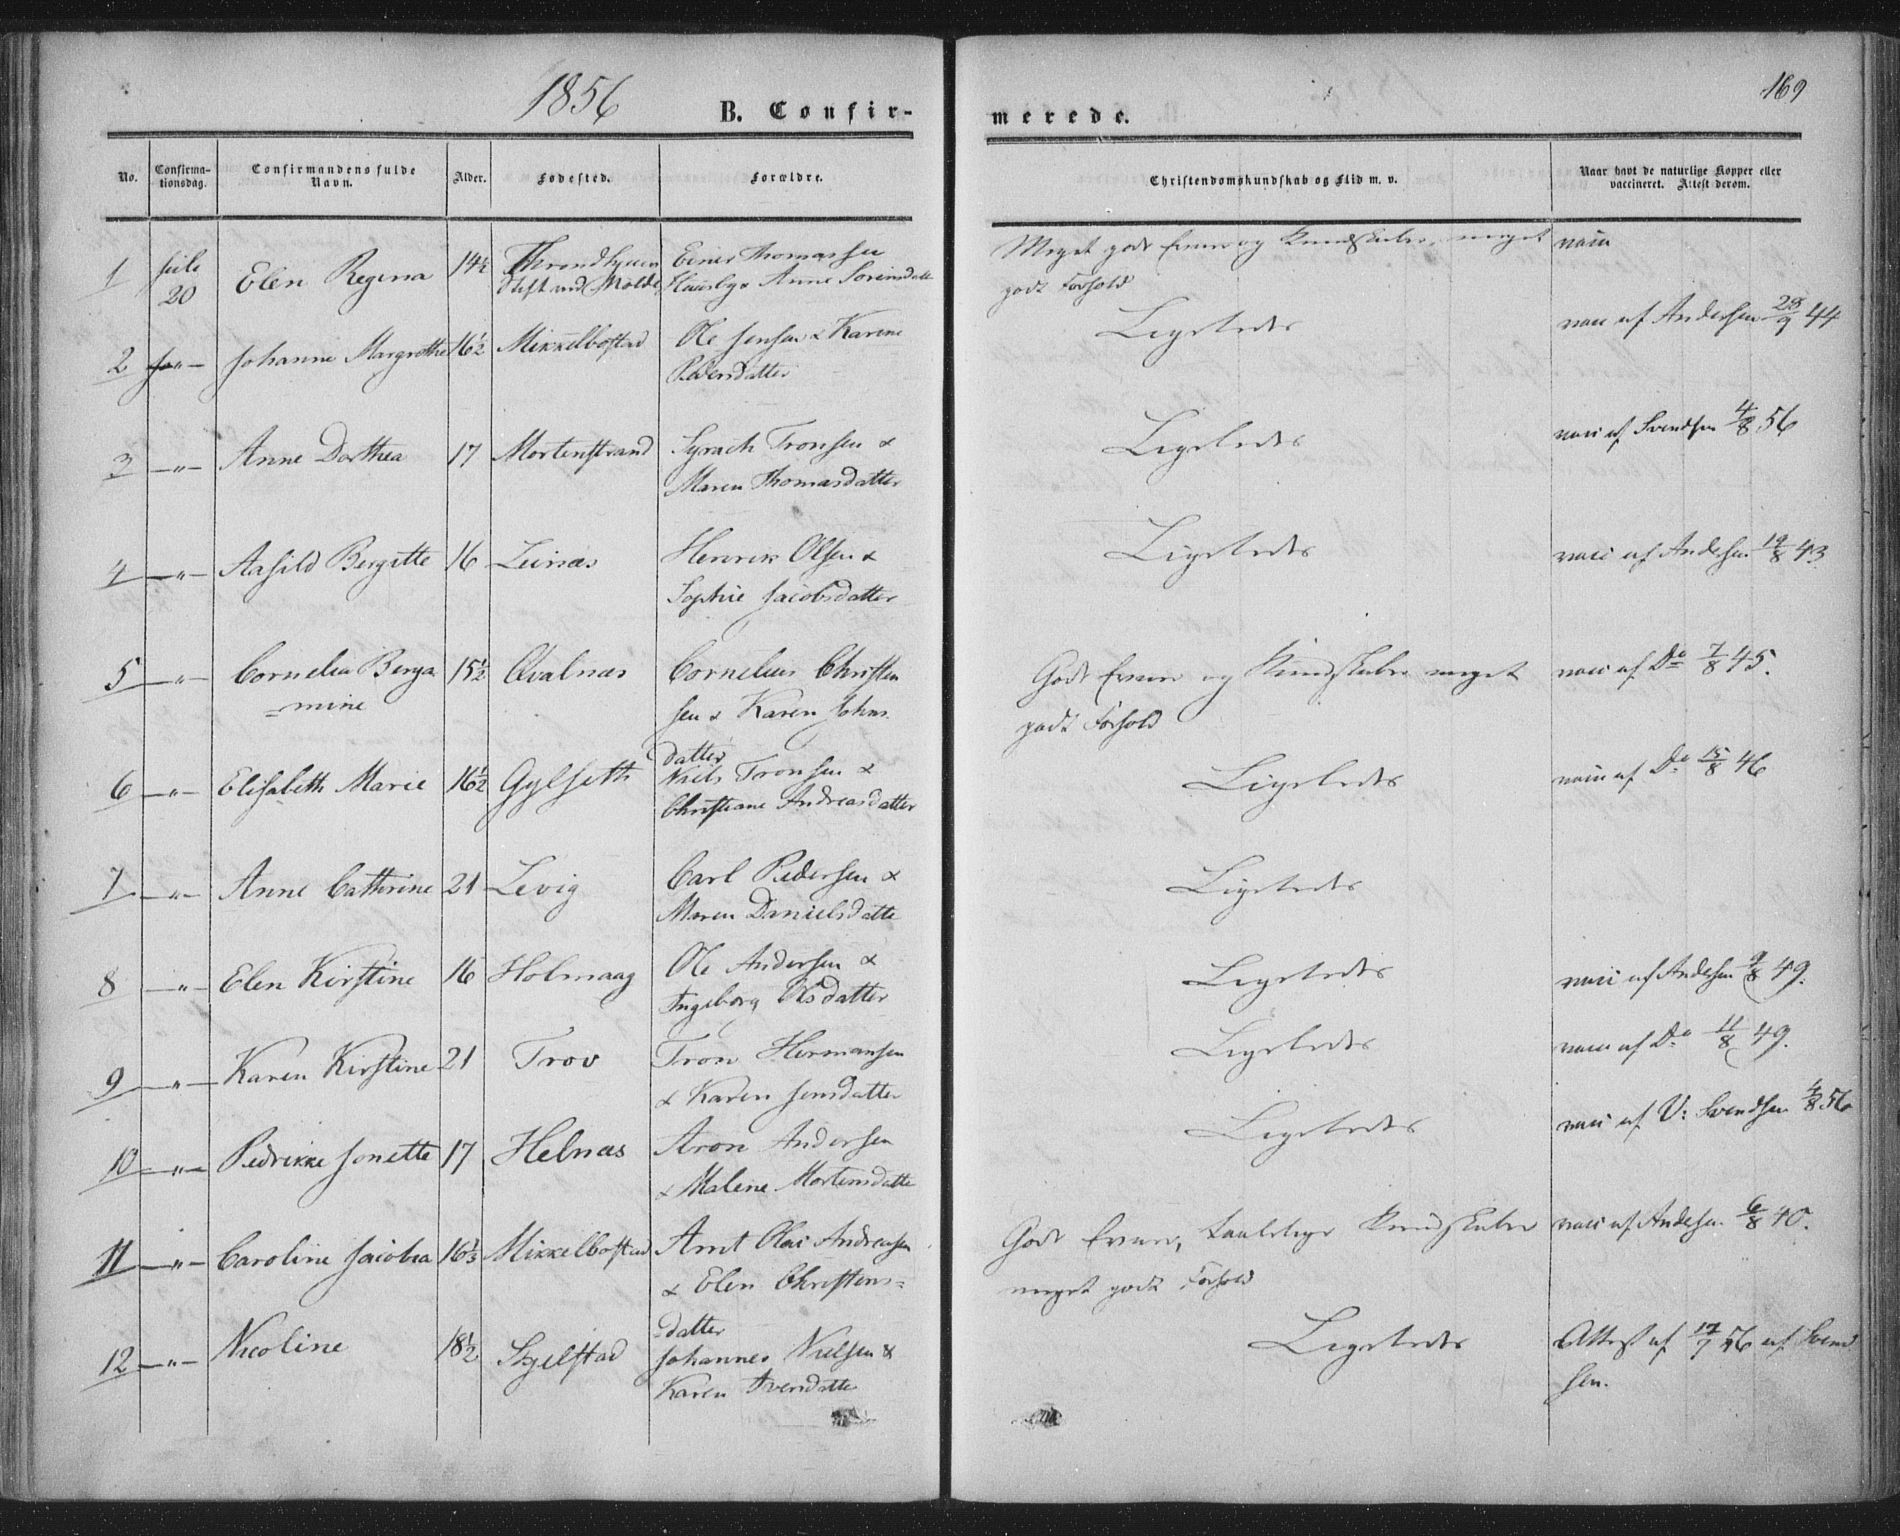 1856
B. Confir-
merede.
169
No.
Confirma-
tionsdag.
Confirmandens fulde
Navn.
Alder.
Fødested.
Forældre.
Christendomskundskab og Flid m. v.
Naar havt de naturlige Kopper eller
vaccineret. Attest derom.
1 Juli 20 Elen Regina 14½ Throndhjem Einer Thomassen
Stift ved Molde Anne Sørensdatt
Meget gode Evner og Kundskaber, meget
godt Forhold
vacc
2 —"— Johanne Margrethe 16½ Mikkelbostad Ole Jensen & Karene
Pedersdatter
Ligeledes
vacc af Andersen 28/9 44
3 —"— Anne Dorthea 17 Mortenstrand Syrach Tronsen &
Maren Thomasdatter
Ligeledes
vacc af Svendsen 4/8 56
4 —"— Aasild Bergitte 16 Leinæs Henrik Olsen &
Sophie Jacobsdatter
Ligeledes
vacc af Andersen 19/8 43
5 —"— Cornelia Berga 15½ Qvalnæs Cornelius Christen
=mine sen & Karen Johns
datter
Gode Evner og Kundskaber meget
godt Forhold
vacc af Do 7/8 45.
6 —"— Elisabeth Marie 16½ Gylseth Niels Tronsen &
Christiane Andreasdatter
Ligeledes
vacc af Do 15/8 46
7 —"— Anne Cathrine 21 Levig Carl Pedersen &
Maren Danielsdatte
Ligeledes
8 —"— Elen Kirstine 16 Holmaag Ole Andersen &
Ingeborg Olsdatter
Ligeledes
vacc af Andersen 9/8 49.
9 —"— Karen Kirstine 21 Trov Tron Hermansen
& Karen Jensdatter
Ligeledes
vacc af Do 11/8 49.
10 —"— Pedrikke Jonette 17 Helnæs Aron Andersen
& Malene Mortensdatte
Ligeledes
vacc af V: Svendsen 4/8 56
11 —"— Caroline Jacobea 16½ Mikkelbostad Arnt Olai Andreasen
& Elen Christens=
=datter
Gode Evner, taalelige Kundskaber
meget godt Forhold
vacc af Andersen 6/8 40.
12 —"— Nicoline 18½ Skjelstad Johannes Nielsen &
Karen Iversdatte
Ligeledes
Attest af 17/7 56 af Svend
sen.